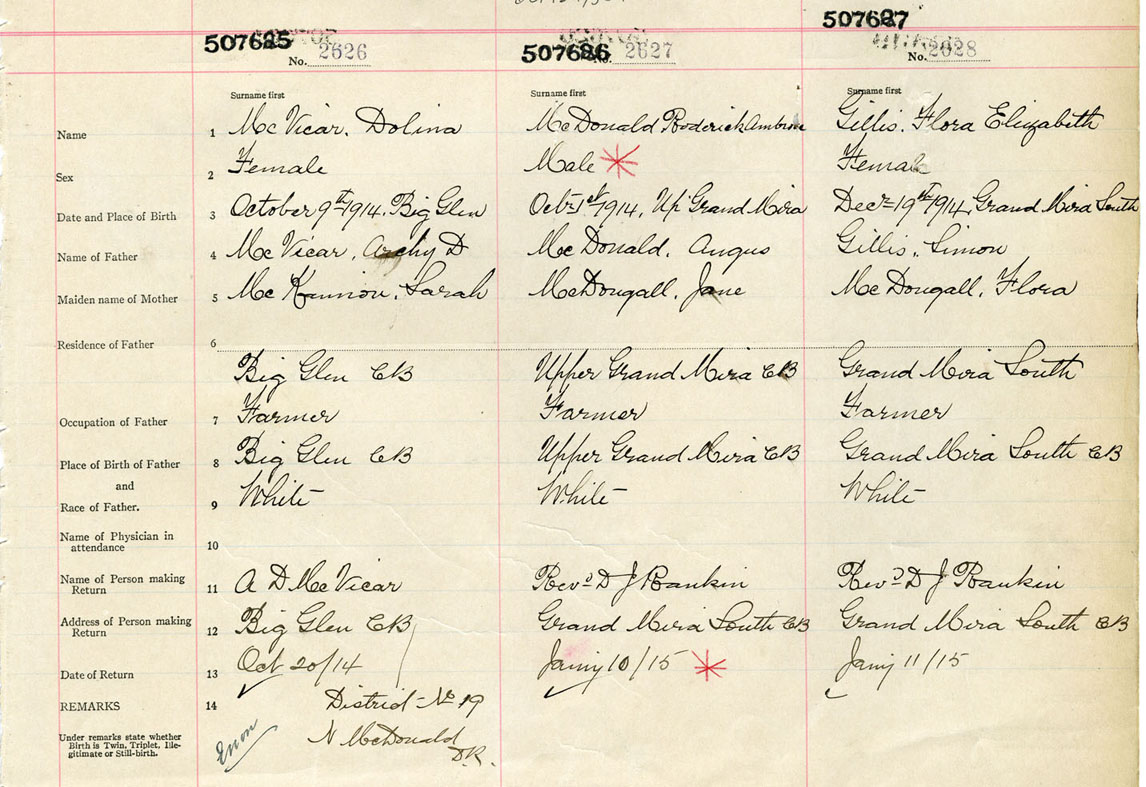 507625 507626 507627
No. 2626 No. 2627 No. 2628
Surname first Surname first Surname first
Name 1 Mc Vicar. Dolina McDonald Roderick Ambrose Gillis. Flora Elizabeth
Sex 2 Female Male Female
Date and Place of Birth 3 October 9th 1914. Big Glen Octr 1st 1914, Up Grand Mira Decr 19th 1914, Grand Mira South
Name of Father 4 Mc Vicar, Archy D Mc Donald, Angus Gillis, Simon
Maiden name of Mother 5 Mc Kinnion, Sarah McDougall, Jane Mc Dougall, Flora
Residence of Father 6 Big Glen CB Upper Grand Mira CB Grand Mira South
Occupation of Father 7 Farmer Farmer Farmer
Place of Birth of Father 8 Big Glen CB Upper Grand Mira CB Grand Mira South CB
and
Race of Father. 9 White White White
Name of Physician in
attendance 10
Name of Person making
Return 11 A D Mc Vicar Revd D J Rankin Revd D J Rankin
Address of Person making
Return 12 Big Glen CB Grand Mira South CB Grand Mira South CB
Date of Return 13 Oct 20/14 Jany 10/15 Jany 11/15
REMARKS 14 District No 19
Under remarks state whether
Birth is Twin, Triplet, Ille-
gitimate or Still-birth.
N McDonald
D.R.